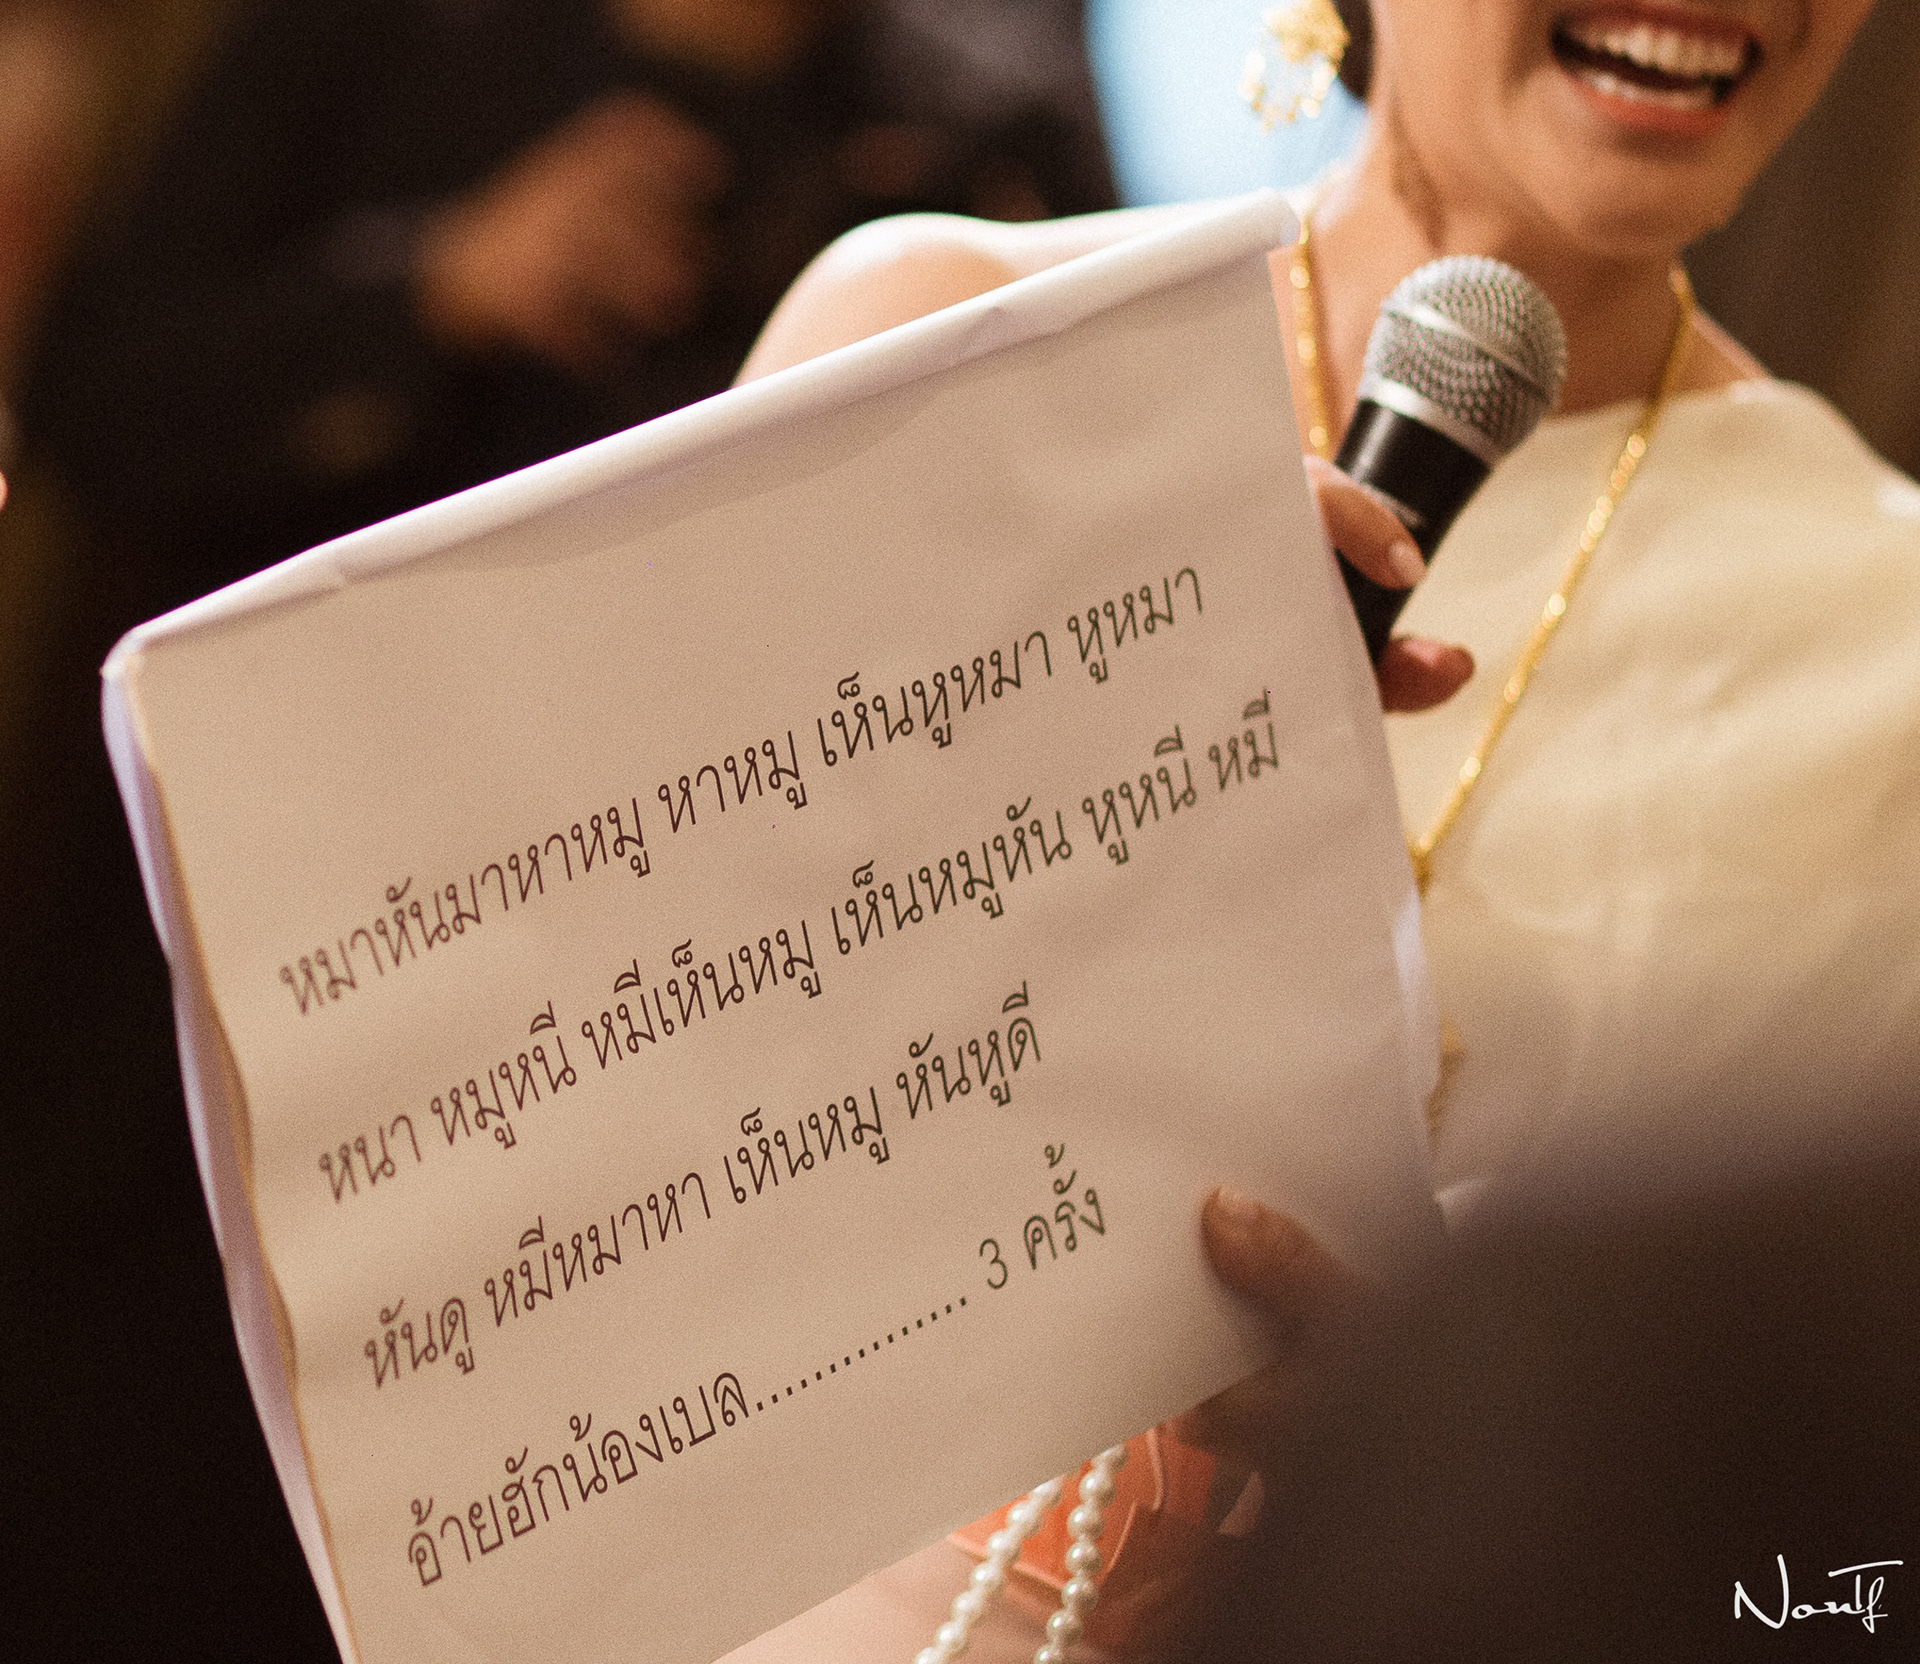 หมาหันมาหาหมู หาหมู เห็นหูหมา หูหมา
หนา หมูหนี หมีเห็นหมู เห็นหมูหัน หูหนี หมี
หันดู หมีหมาหา เห็นหมู หันหูดี
อ้ายฮักน้องเบล............... 3 ครั้ง